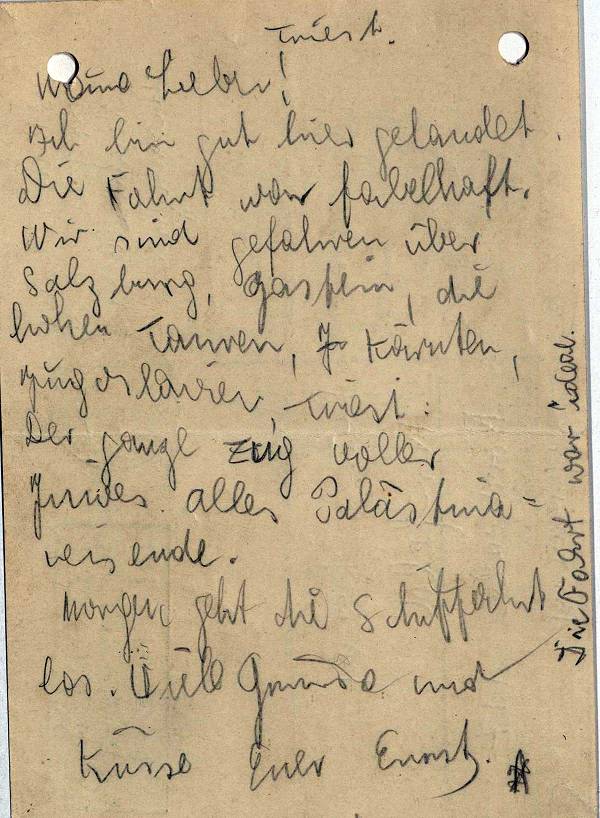 Triest.
Meine Lieben!
Ich bin gut hier gelandet.
Die Fahrt war fabelhaft.
Wir sind gefahren über
Salzburg, Gastein, die
hohen Tauern, Kärnten,
Jugoslavien, Triest.
Der ganze Zug voller
Juden. alles Palästina=
reisende.
Morgen geht die Schiffahrt
los. Viele Grüsse und
Küsse Euer Ernst.
Die Fahrt war ideal.